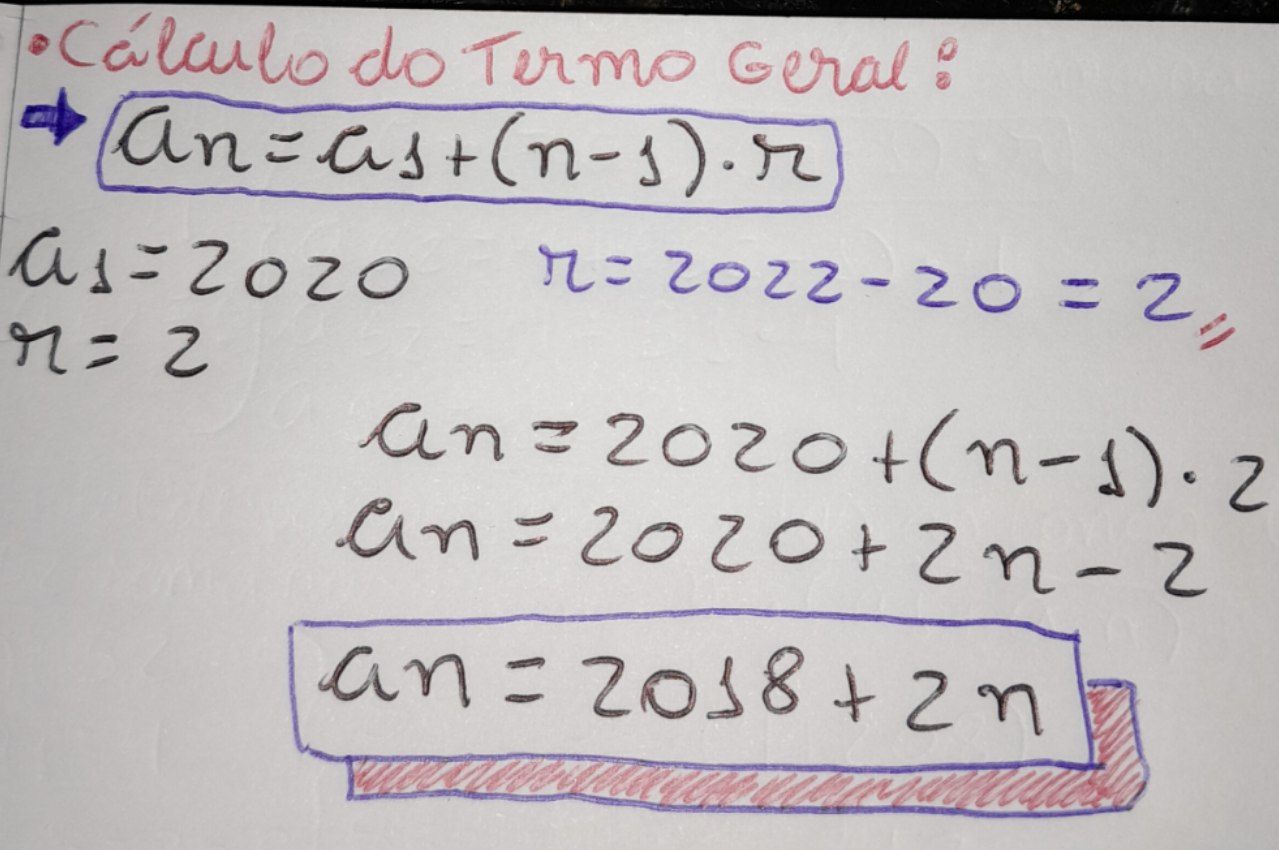 •Cálculo do Termo Geral:
an=a1+(n-1).r
a1=2020 r=2022-20=2
r=2
an=2020+(n-1).2
an=2020+2n-2
an=2018+2n